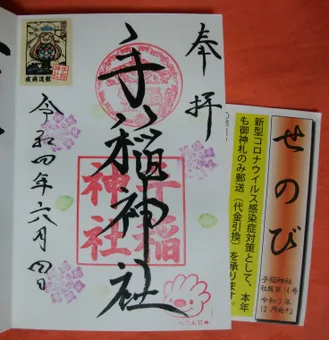 奉拝
手稲神社
手稲
神社
令和四年六月四日
疾病退散
せのび
手稲神社
社報第14号
令和3年
12月発行
新型コロナウイルス感染症対策として、本年
も御神札のみ郵送（代金引換）を承ります。